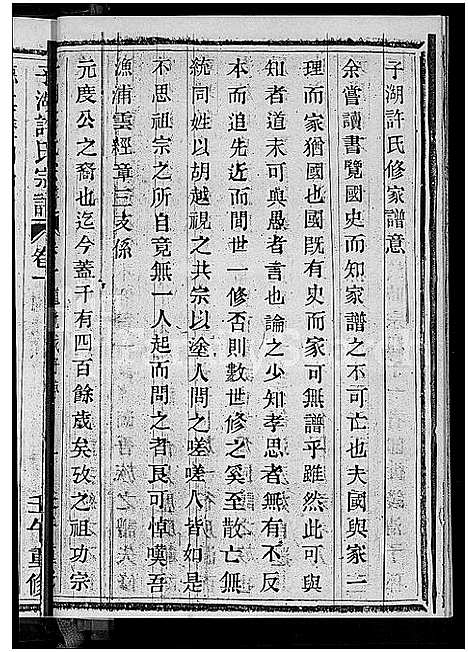 子湖許氏修家譜意
余嘗讀書覽國史而知家譜之不可亡也夫國與家一
理而家猶國也國既有史而家可無譜乎雖然此可與
知者道未可與愚者言也論之少知孝思者無有不反
本而追先近而間世一修否則數世修之奚至散亡無
統同姓以胡越視之共宗以塗人問之嗟嗟人皆如是
不思祖宗之所自竟無一人起而問之者良可悼嘆吾
漁浦雲經章三支係
元度公之裔也迄今蓋千有四百餘歲矣攷之祖功宗
子湖許氏宗譜
卷一
壬午重修